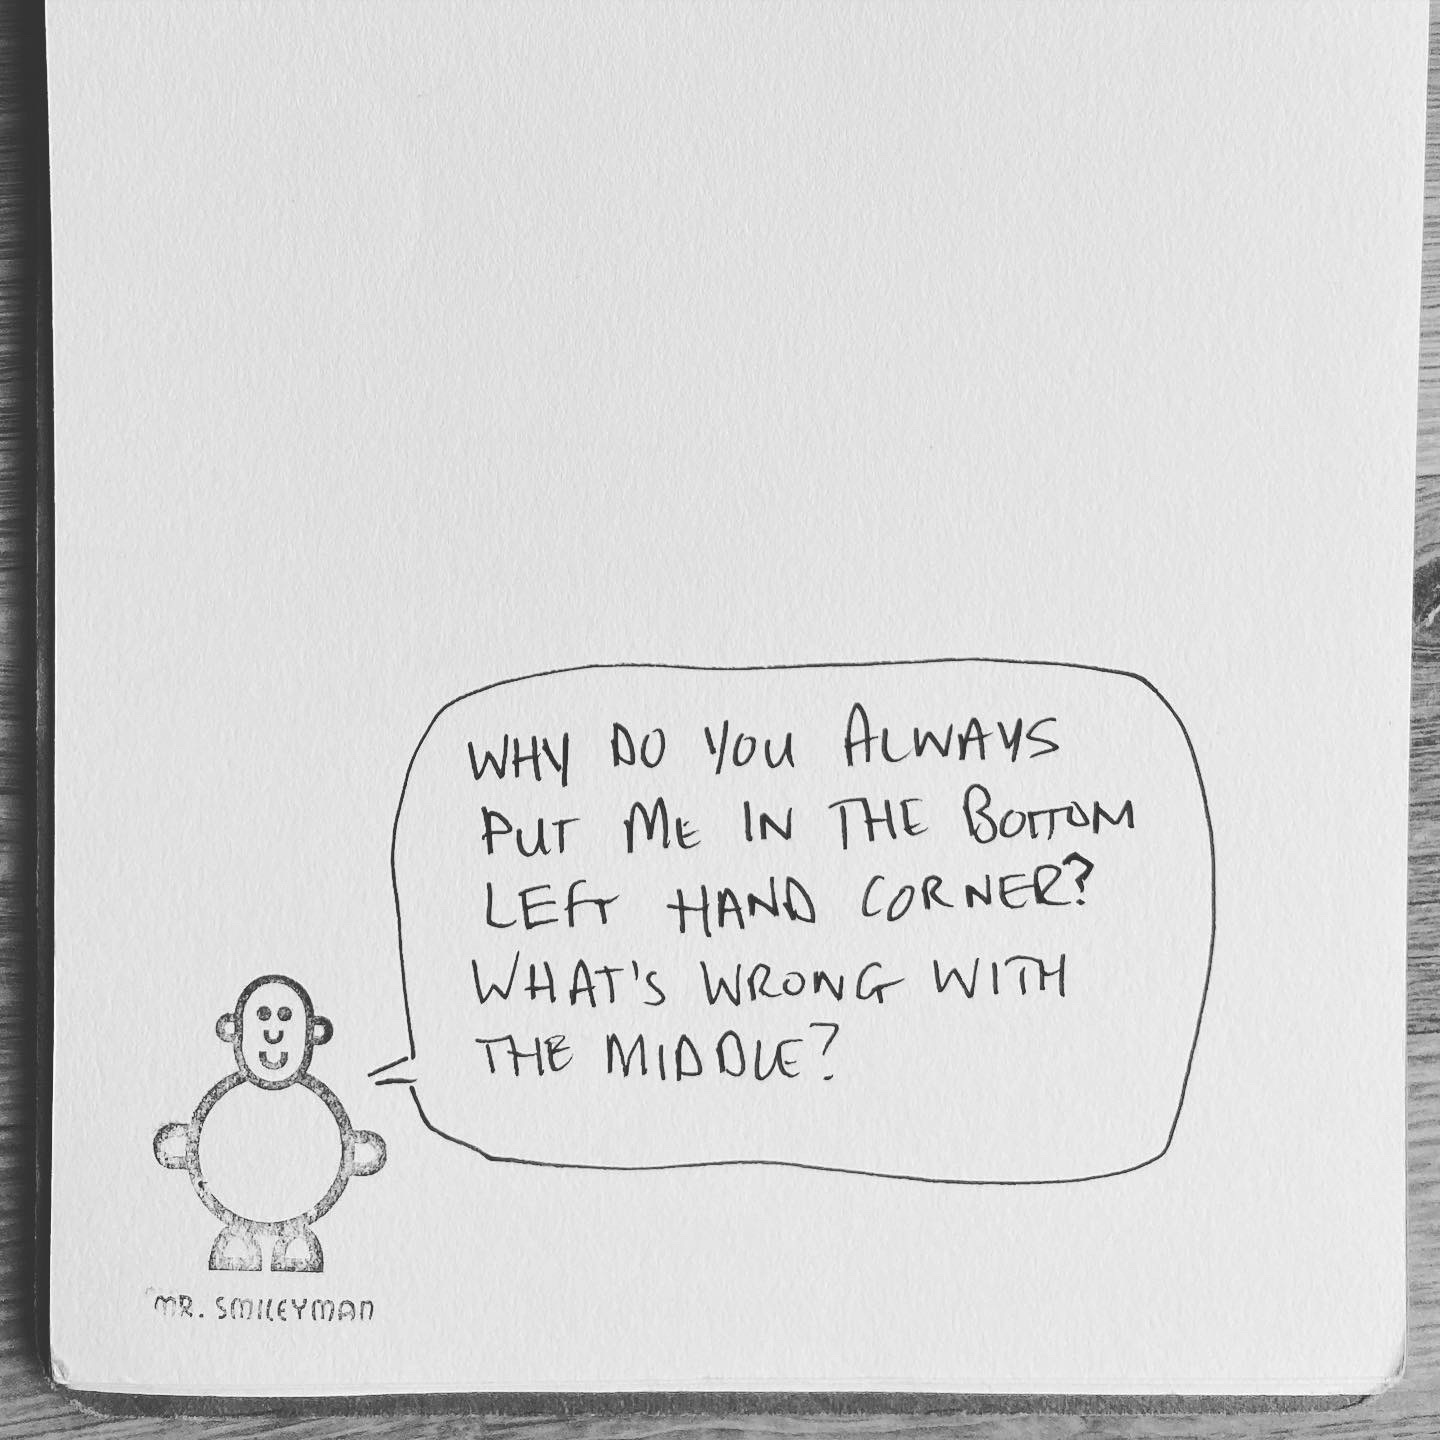 WHY DO YOU ALWAYS
PUT ME IN THE BOTTOM
LEFT HAND CORNER?
WHAT'S WRONG WITH
THE MIDDLE?
MR. SMILEYMAN